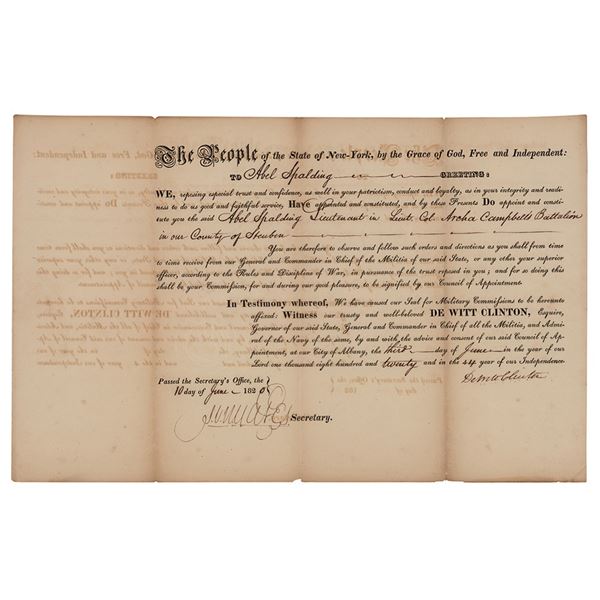 The People of the State of New-York, by the Grace of God, Free and Independent:
TO Abel Spalding GREETING:
WE, reposing special trust and confidence, as well in your patriotism, conduct and loyalty, as in your integrity and readi-
ness to do us good and faithful service, Have appointed and constituted, and by these Presents Do appoint and consti-
tute you the said Abel Spalding Lieutenant in Lieut. Col. Archa Campbells Battalion
in our County of Steuben
You are therefore to observe and follow such orders and directions as you shall from time
to time receive from our General and Commander in Chief of the Militia of our said State, or any other your superior
officer, according to the Rules and Discipline of War, in pursuance of the trust reposed in you; and for so doing this
shall be your Commission, for and during our good pleasure, to be signified by our Council of Appointment.
In Testimony whereof, We have caused our Seal for Military Commissions to be hereunto
affixed: Witness our trusty and well-beloved DE WITT CLINTON, Esquire,
Governor of our said State, General and Commander in Chief of all the Militia, and Admi-
ral of the Navy of the same, by and with the advice and consent of our said Council of Ap-
pointment, at our City of Albany, the third day of June in the year of our
Lord one thousand eight hundred and twenty and in the 44 year of our Independence.
Passed the Secretary's Office, the
10 day of June 1820
DeWitt Clinton
Secretary.